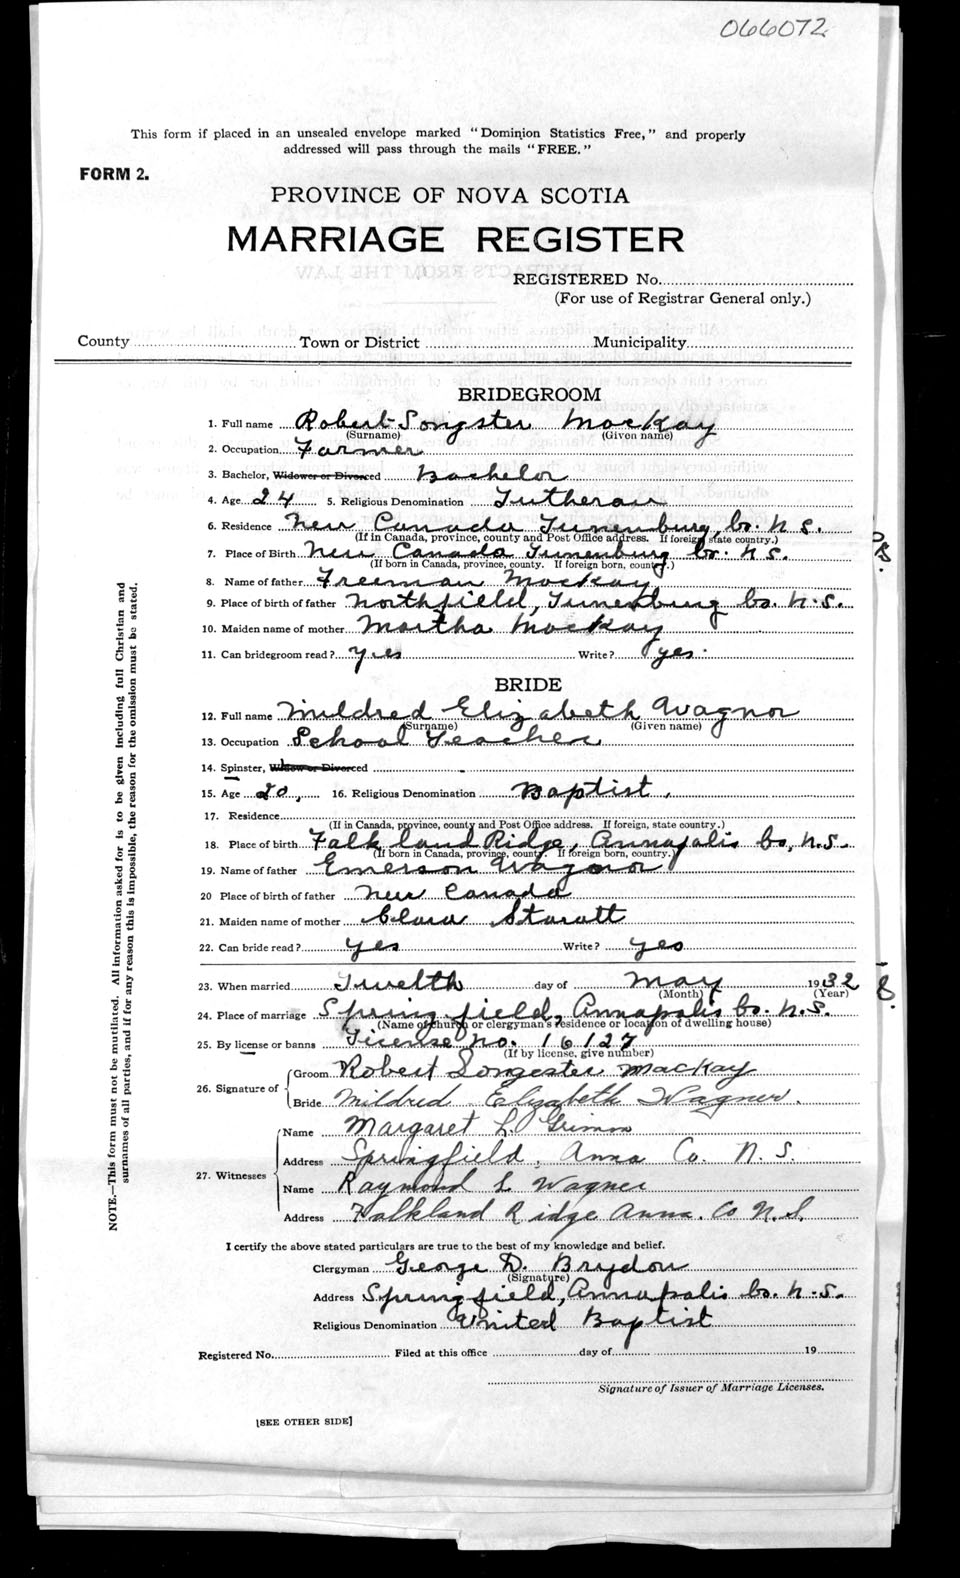 066072
This form if placed in an unsealed envelope marked "Dominion Statistics Free," and properly
addressed will pass through the mails "FREE."
FORM 2.
PROVINCE OF NOVA SCOTIA
MARRIAGE REGISTER
REGISTERED No.
(For use of Registrar General only.)
County Town or District Municipality
BRIDEGROOM
1. Full name Robert Songster MacKay
(Surname) (Given name)
2. Occupation Farmer
3. Bachelor, Widower or Divorced Bachelor
4. Age 24 5. Religious Denomination Lutheran
6. Residence New Canada Lunenburg, Co. N S.
(If in Canada, province, county and Post Office address. If foreign state country.)
7. Place of Birth New Canada Lunenburg Co. N S.
(If born in Canada, province, county. If foreign born, country.)
8. Name of father Freeman MacKay
9. Place of birth of father Northfield, Lunenburg Co. N.S.
10. Maiden name of mother Martha MacKay
11. Can bridegroom read? Yes Write? yes
BRIDE
12. Full name Mildred Elizabeth Wagner
(Surname) (Given name)
13. Occupation School Teacher
14. Spinster, Widow or Divorced
15. Age 20, 16. Religious Denomination Baptist.
17. Residence
(If in Canada, province, county and Post Office address. If foreign, state country.)
18. Place of birth Falkland Ridge, Annapolis Co, N.S.
(If born in Canada, province, county. If foreign born, country.)
19. Name of father Emerson Wagner
20 Place of birth of father New Canada
21. Maiden name of mother Clara Staratt
22. Can bride read? yes Write? yes
23. When married Twelth day of May 1932
(Month) (Year)
24. Place of marriage Springfield, Annapolis Co. N.S.
(Name of church or clergyman's residence or location of dwelling house)
25. By license or banns License No. 16127
(If by license, give number)
26. Signature of Groom Robert Songester MacKay
Bride Mildred Elizabeth Wagner.
27. Witnesses Name Margaret L. Grimm
Address Springfield, Anna Co. N. S.
Name Raymond L Wagner
Address Falkland Ridge Anna. Co N.S.
I certify the above stated particulars are true to the best of my knowledge and belief.
Clergyman George D. Brydon
(Signature)
Address Springfield, Annapolis Co. N.S.
Religious Denomination United Baptist
Registered No. Filed at this office day of 19
Signature of Issuer of Marriage Licenses.
[SEE OTHER SIDE]
NOTE.—This form must not be mutilated. All information asked for is to be given including full Christian and
surnames of all parties, and if for any reason this is impossible, the reason for the omission must be stated.